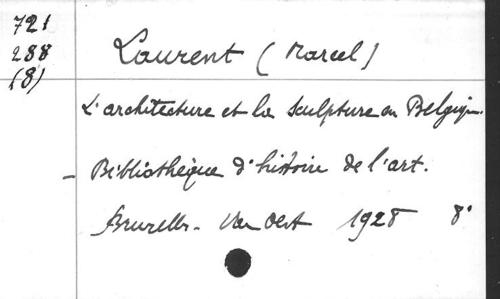 721
288
(8)
Laurent (Marcel)
L'architecture et la sculpture en Belgique.
- Bibliothèque d'histoire de l'art.
Bruxelles - Van Oest 1928 8°